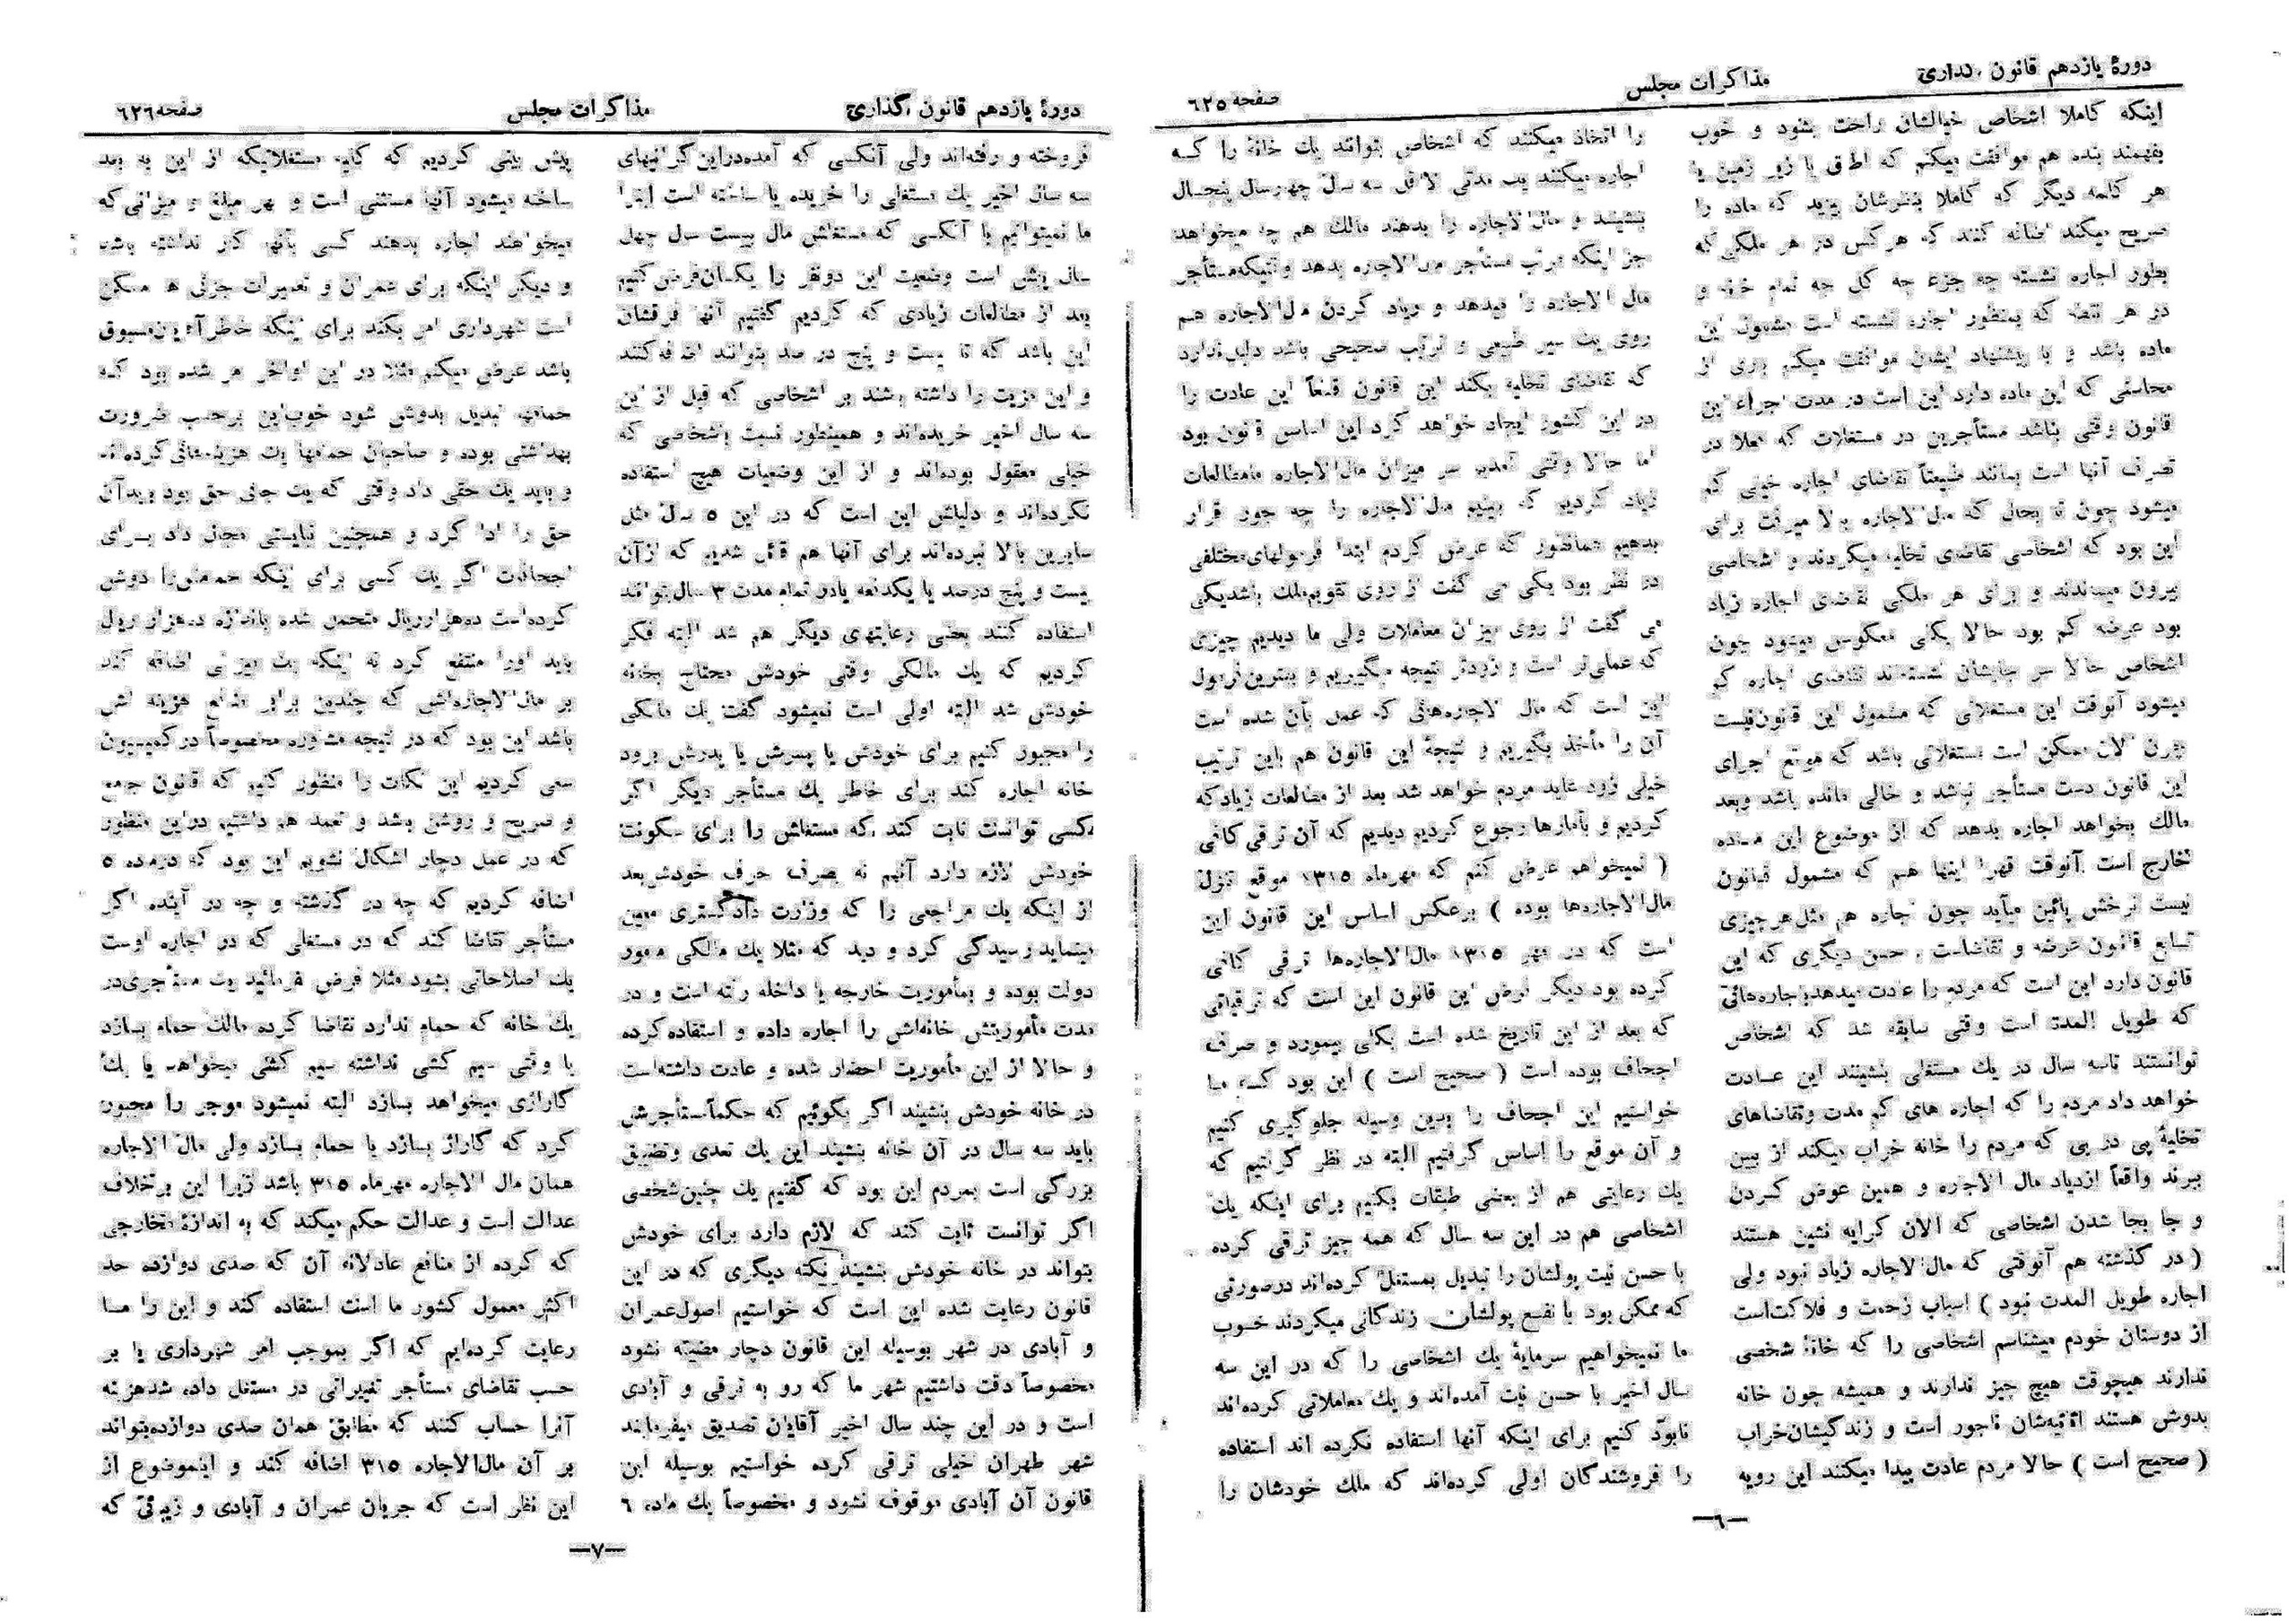 دورهٔ یازدهم قانون گذاری
مذاکرات مجلس
صفحه ٦٢٥
اینکه کاملا اشخاص خیالشان راحت بشود و خوب
بفهمند بنده هم موافقت میکنم که اطاق یا زیر زمین یا
هر کلمه دیگر که کاملا بنظرشان بیاید که ماده را
صریح میکند اضافه کنند که هر کس در هر ملکی که
بطور اجاره نشسته چه جزء چه کل چه تمام خانه و
در هر نقطه که بمنظور اجاره نشسته است مشمول این
ماده باشد و با پیشنهاد ایشان موافقت میکنم یکی از
محاسنی که این ماده دارد این است در مدت اجراء این
قانون وقتی بناشد مستأجرین در مستغلات که فعلا در
تصرف آنها است بمانند طبیعتاً تقاضای اجاره خیلی کم
میشود چون تا بحال که مال الاجاره بالا میرفت برای
این بود که اشخاصی تقاضای تخلیه میکردند و اشخاصی
بیرون میماندند و برای هر ملکی تقاضای اجاره زیاد
بود عرضه کم بود حالا بکلی معکوس میشود چون
اشخاص حالا سر جایشان نشسته‌اند تقاضای اجاره کم
میشود آنوقت این مستغلاتی که مشمول این قانون نیست
چون الان ممکن است مستغلاتی باشد که موقع اجرای
این قانون دست مستأجر نباشد و خالی مانده باشد و بعد
مالک بخواهد اجاره بدهد که از موضوع این ماده
خارج است آنوقت قهرا اینها هم که مشمول قانون
نیست نرخش پائین میآید چون اجاره هم مثل هر چیزی
تابع قانون عرضه و تقاضاست . حسن دیگری که این
قانون دارد این است که مردم را عادت میدهد باجاره‌هائی
که طویل المدت است وقتی سابقه شد که اشخاص
توانستند تا سه سال در یك مستغلی بنشینند این عادت
خواهد داد مردم را که اجاره های کم مدت و تقاضاهای
تخلیهٔ پی در پی که مردم را خانه خراب میکند از بین
ببرند واقعاً ازدیاد مال الاجاره و همین عوض کردن
و جا بجا شدن اشخاصی که الان کرایه نشین هستند
( در گذشته هم آنوقتی که مال الاجاره زیاد نبود ولی
اجاره طویل المدت نبود ) اسباب زحمت و فلاکت است
از دوستان خودم میشناسم اشخاصی را که خانهٔ شخصی
ندارند هیچوقت هیچ چیز ندارند و همیشه چون خانه
بدوش هستند اثاثیه‌شان ناجور است و زندگیشان خراب
( صحیح است ) حالا مردم عادت پیدا میکنند این رویه
را اتخاذ میکنند که اشخاص بتوانند یك خانهٔ را که
اجاره میکنند یك مدتی لااقل سه سال چهار سال پنجسال
بنشینند و مال الاجاره را بدهند مالك هم چه میخواهد
جز اینکه مرتب مستأجر مال الاجاره بدهد وقتیکه مستأجر
مال الاجاره را میدهد و زیاد کردن مال الاجاره هم
روی یك سیر طبیعی و ترتیب صحیحی باشد دلیل ندارد
که تقاضای تخلیه بکند این قانون قطعاً این عادت را
در این کشور ایجاد خواهد کرد این اساس قانون بود
اما حالا وقتی آمدیم سر میزان مال الاجاره ما مطالعات
زیاد کردیم که ببینیم مال الاجاره را چه جور قرار
بدهیم همانطور که عرض کردم ابتدا فرمولهای مختلفی
در نظر بود یکی می گفت از روی تقویم ملك باشد یکی
می گفت از روی میزان معاملات ولی ما دیدیم چیزی
که عملی‌تر است و زودتر نتیجه میگیریم و بهترین فرمول
این است که مال الاجاره‌هائی که عمل بآن شده است
آن را مأخذ بگیریم و نتیجهٔ این قانون هم باین ترتیب
خیلی زود عاید مردم خواهد شد بعد از مطالعات زیاد که
کردیم و بآمارها رجوع کردیم دیدیم که آن ترقی کافی
( نمیخواهم عرض کنم که مهرماه ١٣١٥ موقع تنزل
مال الاجاره‌ها بوده ) برعکس اساس این قانون این
است که در مهر ١٣١٥ مال الاجاره‌ها ترقی کافی
کرده بود دیگر فرض این قانون این است که ترقیاتی
که بعد از این تاریخ شده است بکلی بیمورد و صرف
اجحاف بوده است ( صحیح است ) این بود که ما
خواستیم این اجحاف را بدین وسیله جلوگیری کنیم
و آن موقع را اساس گرفتیم البته در نظر گرفتیم که
یك رعایتی هم از بعضی طبقات بکنیم برای اینکه یك
اشخاصی هم در این سه سال که همه چیز ترقی کرده
با حسن نیت پولشان را تبدیل بمستغل کرده‌اند در صورتی
که ممکن بود با نفع پولشان زندگانی میکردند خوب
ما نمیخواهیم سرمایهٔ یك اشخاصی را که در این سه
سال اخیر با حسن نیت آمده‌اند و یك معاملاتی کرده‌اند
نابود کنیم برای اینکه آنها استفاده نکرده اند استفاده
را فروشندگان اولی کرده‌اند که ملك خودشان را
—٦—
دورهٔ یازدهم قانون گذاری
مذاکرات مجلس
صفحه ٦٢٦
فروخته و رفته‌اند ولی آنکسی که آمده در این گرانیهای
سه سال اخیر یك مستغلی را خریده یا ساخته است اینرا
ما نمیتوانیم با آنکسی که مستغلش مال بیست سال چهل
سال پیش است وضعیت این دو نفر را یکسان فرض کنیم
بعد از مطالعات زیادی که کردیم گفتیم آنها فرقشان
این باشد که تا بیست و پنج در صد بتوانند اضافه کنند
و این مزیت را داشته باشند بر اشخاصی که قبل از این
سه سال اخیر خریده‌اند و همینطور نسبت باشخاصی که
خیلی معقول بوده‌اند و از این وضعیات هیچ استفاده
نکرده‌اند و دلیلش این است که در این ٥ سال مثل
سایرین بالا نبرده‌اند برای آنها هم قائل شدیم که از آن
بیست و پنج درصد یا یکدفعه یا در تمام مدت ٣ سال بتوانند
استفاده کنند بعضی رعایتهای دیگر هم شد البته فکر
کردیم که یك مالکی وقتی خودش محتاج بخانه
خودش شد البته اولی است نمیشود گفت یك مالکی
را مجبور کنیم برای خودش یا پسرش یا پدرش برود
خانه اجاره کند برای خاطر یك مستأجر دیگر اگر
کسی توانست ثابت کند که مستغلش را برای سکونت
خودش لازم دارد آنهم نه بصرف حرف خودش بعد
از اینکه یك مراجعی را که وزارت دادگستری معین
مینماید رسیدگی کرد و دید که مثلا یك مالکی مأمور
دولت بوده و بمأموریت خارجه یا داخله رفته است و در
مدت مأموریتش خانه‌اش را اجاره داده و استفاده کرده
و حالا از این مأموریت احضار شده و عادت داشته است
در خانه خودش بنشیند اگر بگوئیم که حکماً مستأجرش
باید سه سال در آن خانه بنشیند این یك تعدی و تضییق
بزرگی است بمردم این بود که گفتیم یك چنین شخصی
اگر توانست ثابت کند که لازم دارد برای خودش
بتواند در خانه خودش بنشیند نکته دیگری که در این
قانون رعایت شده این است که خواستیم اصول عمران
و آبادی در شهر بوسیله این قانون دچار مضیقه نشود
مخصوصاً دقت داشتیم شهر ما که رو به ترقی و آبادی
است و در این چند سال اخیر آقایان تصدیق میفرمایند
شهر طهران خیلی ترقی کرده خواستیم بوسیله این
قانون آن آبادی موقوف نشود و مخصوصاً یك ماده ٦
پیش بینی کردیم که کلیه مستغلاتیکه از این به بعد
ساخته میشود آنها مستثنی است و بهر مبلغ و میزانی که
میخواهند اجاره بدهند کسی بآنها کار نداشته باشد
و دیگر اینکه برای عمران و تعمیرات جزئی ها ممکن
است شهرداری امر بکند برای اینکه خاطر آقایان مسبوق
باشد عرض میکنم مثلا در این اواخر امر شده بود که
حمامها تبدیل بدوش شود خوب این برحسب ضرورت
بهداشتی بوده و صاحبان حمامها یك هزینه‌هائی کرده‌اند
و باید یك حقی داد وقتی که یك جائی حق بود باید آن
حق را ادا کرد و همچنین نبایستی مجال داد برای
اجحافات اگر یك کسی برای اینکه حمامش را دوش
کرده است ده هزار ریال متحمل شده باندازه ده هزار ریال
باید او را منتفع کرد نه اینکه یك میزانی اضافه کند
بر مال الاجاره‌اش که چندین برابر منافع هزینه اش
باشد این بود که در نتیجه مشاوره مخصوصاً در کمیسیون
سعی کردیم این نکات را منظور کنیم که قانون جامع
و صریح و روشن باشد و تعمد هم داشتیم در این منظور
که در عمل دچار اشکال نشویم این بود که در ماده ٥
اضافه کردیم که چه در گذشته و چه در آینده اگر
مستأجر تقاضا کند که در مستغلی که در اجاره اوست
یك اصلاحاتی بشود مثلا فرض فرمائید یك مستأجری در
یك خانه که حمام ندارد تقاضا کرده مالك حمام بسازد
یا وقتی سیم کشی نداشته سیم کشی میخواهد یا یك
گاراژی میخواهد بسازد البته نمیشود موجر را مجبور
کرد که گاراژ بسازد یا حمام بسازد ولی مال الاجاره
همان مال الاجاره مهرماه ٣١٥ باشد زیرا این برخلاف
عدالت است و عدالت حکم میکند که به اندازهٔ مخارجی
که کرده از منافع عادلانه آن که صدی دوازده حد
اکثر معمول کشور ما است استفاده کند و این را ما
رعایت کرده‌ایم که اگر بموجب امر شهرداری یا بر
حسب تقاضای مستأجر تغییراتی در مستغل داده شد هزینه
آنرا حساب کنند که مطابق همان صدی دوازده بتواند
بر آن مال الاجاره ٣١٥ اضافه کند و اینموضوع از
این نظر است که جریان عمران و آبادی و زیبائی که
—٧—